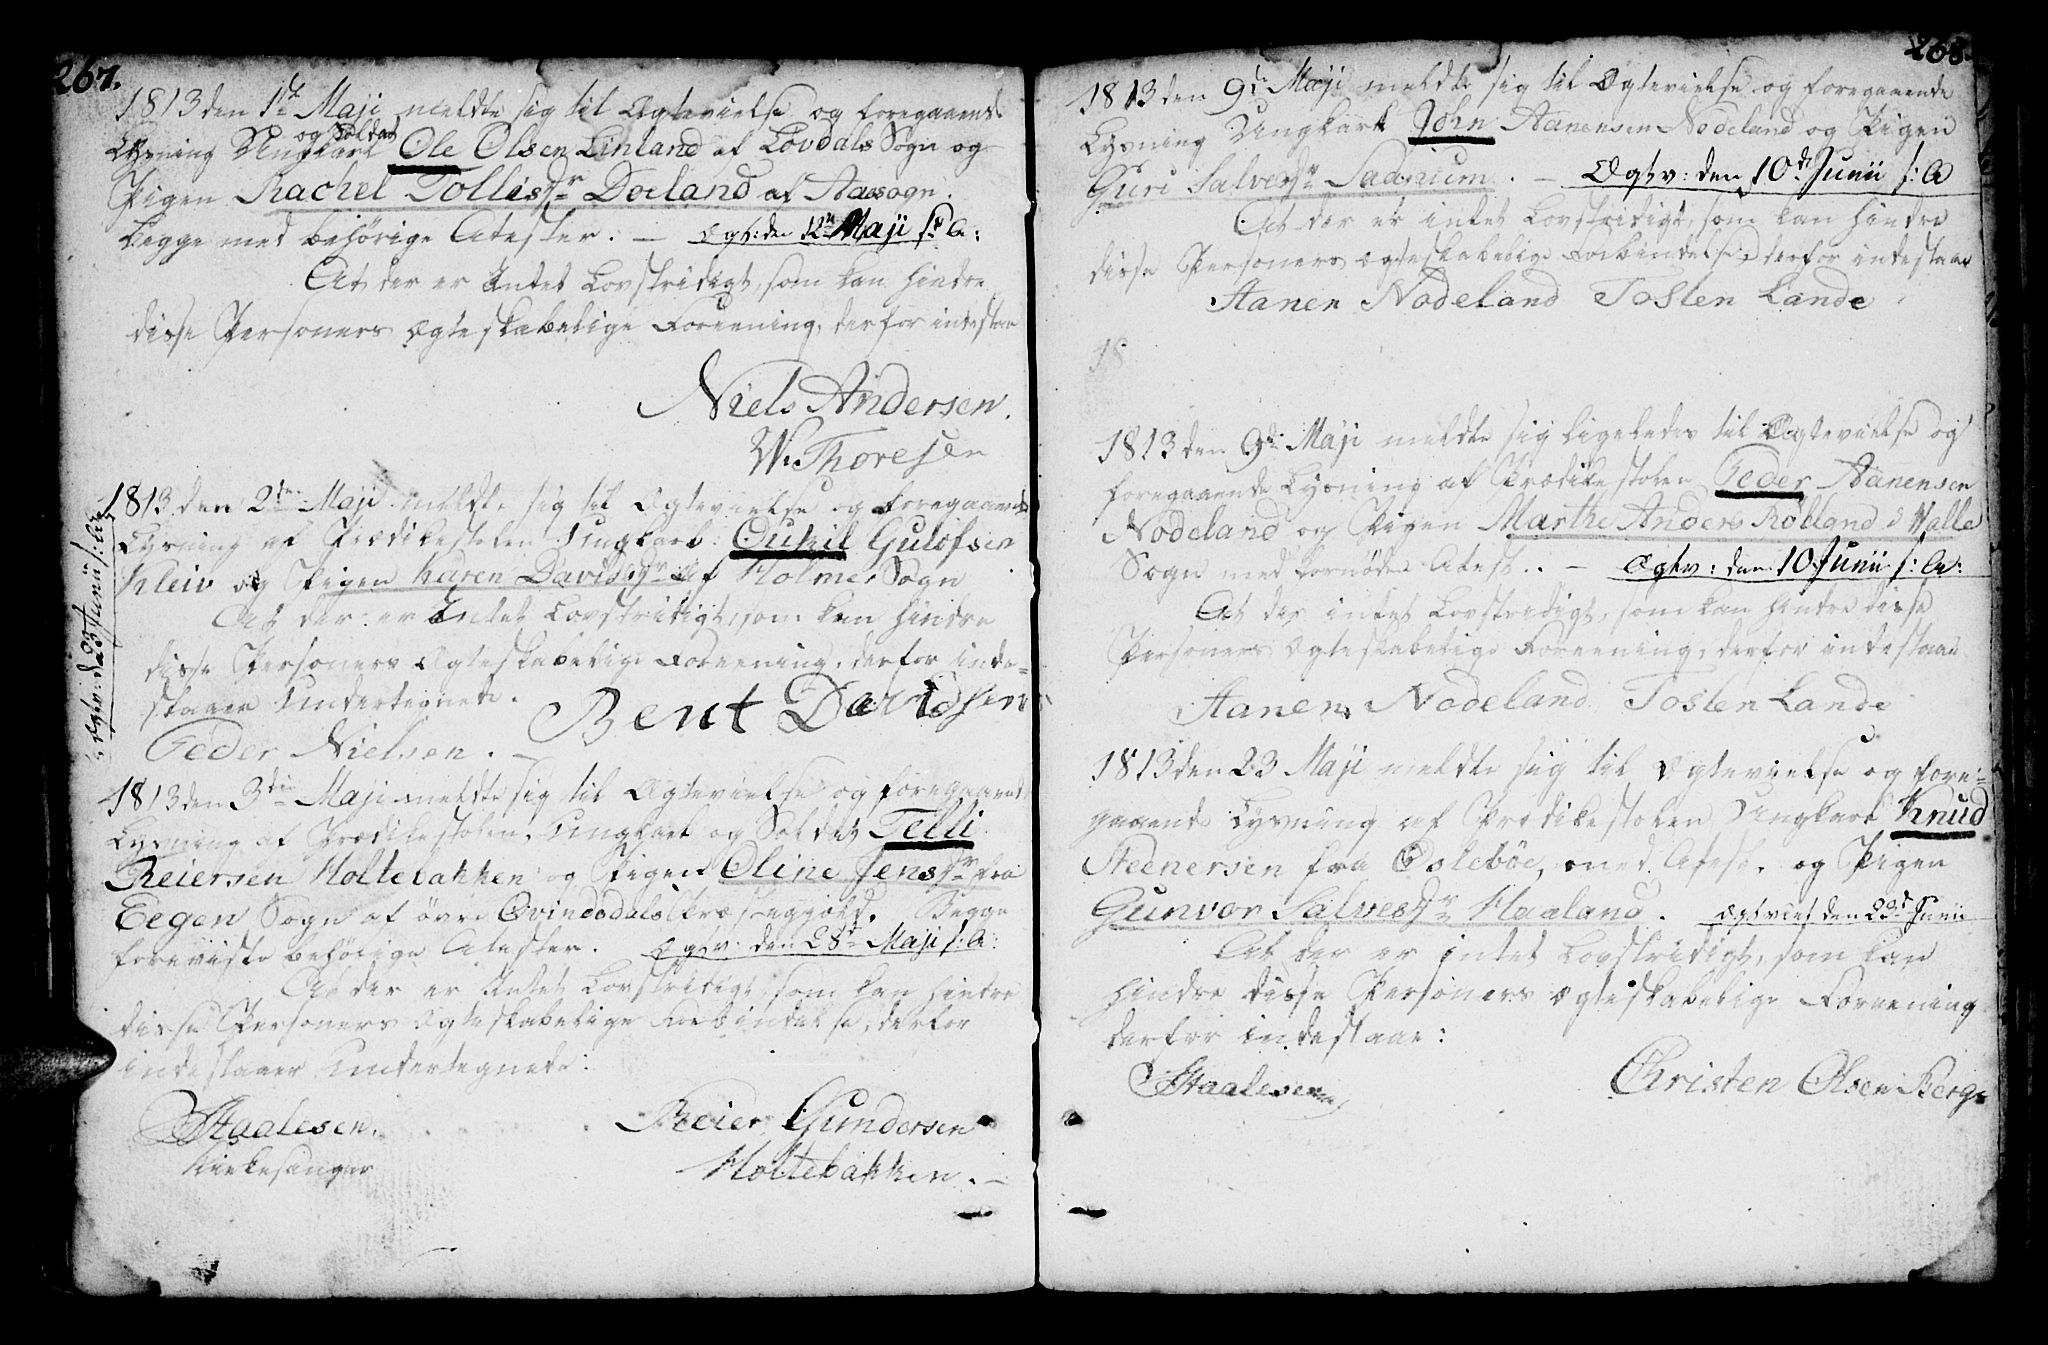 267.
1813 den 1te Maji meldte sig til Ægtevielse og foregaaende
Lysning Ungkarl og Soldat Ole Olsen Linland af Lovdals Sogn og
Pigen Rachel Tollisdr Doeland af Aasogn.
begge med behørige Atester. — Ægt: den 12te Maji s: A:
At der er Intet Lovstridigt, som kan hindre
disse Personers Ægteskabelige Foreening, derfor indestaae
Niels Andersen.
W. Thoresen
1813 den 2den Maji meldte sig til Ægtevielse og foregaaende
Lysning af Prædikestolen Ungkarl: Ouhil Gulofsen
Kleiv og Pigen Karen Davidsdr af Holme Sogn
At der er Intet Lovstridigt, som kan hindre
disse Personers Ægteskabelige Foreening, derfor inde-
staaer Undertegnede.
Bent Davidsen
Peder Nielsen.
Ægtv: d: 23 Junii s: A:
1813 den 3die Maji meldte sig til Ægtevielse og foregaaende
Lysning af Prædikestolen, Ungkarl og Soldat Telli
Reiersen Holtebakken og Pigen Oline Jensdr fra
Eegen Sogn af øvre Qvindsdals Præstegjeld. Begge
foreviste behørige Atester. Ægtv: den 28de Maji s: A:
At der er Intet Lovstridigt, som kan hindre
disse Personers Ægteskabelige Forbindelse, derfor
indestaaer Undertegnede:
Staalesen.
Kirkesanger
Reier Gundersen
Holtebakken. —
268.
1813 den 9de Maji meldte sig til Ægtevielse og foregaaende
Lysning Ungkarl John Aanensen Nodeland og Pigen
Guri Salvesdr . — Ægtv: den 10de Junii s: A
At der er intet Lovstridigt, som kan hindre
disse Personers Ægteskabelige Forbindelse, derfor indestaae
Aanen Nodeland Tosten Lande
18
1813 den 9de Maji meldte sig ligeledes til Ægtevielse og
foregaaende Lysning af Prædikestolen Peder Aanensen
Nodeland og Pigen Marthe Anders Rölland i Halle
Sogn med fornøden Atest.. — Ægtv: den 10 Junii s: A:
At der intet Lovstridigt, som kan hindre disse
Personers Ægteskabelige Foreening, derfor indestaae
Aanen Nodeland Tosten Lande
1813 den 23 Maji meldte sig til Ægtevielse og fore-
gaaende Lysning af Prædikestolen Ungkarl Knud
Steenersen fra Øslebøe, med Atest. og Pigen
Gunvor Salvesdr Haaland. Ægtviet den 29de Junii
At der er intet Lovstridigt, som kan
hindre disse Personers Ægteskabelige Foreening
derfor indestaae:
Staalesen
Christen Olsen Berge